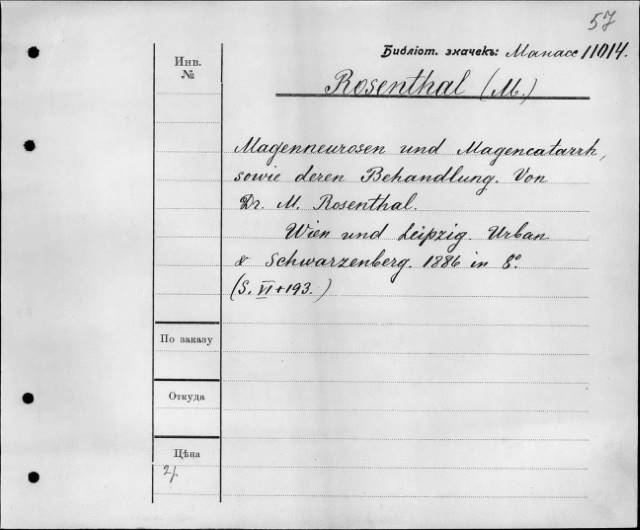 57
Библіот. значекъ: Манасс 11014.
Инв.
№
Rosenthal (M.)
Magenneurosen und Magencatarrh,
sowie deren Behandlung. Von
Dr. M. Rosenthal.
Wien und Leipzig. Urban
& Schwarzenberg. 1886 in 8º.
(S. VI+193.)
По заказу
Откуда
Цѣна
2/.